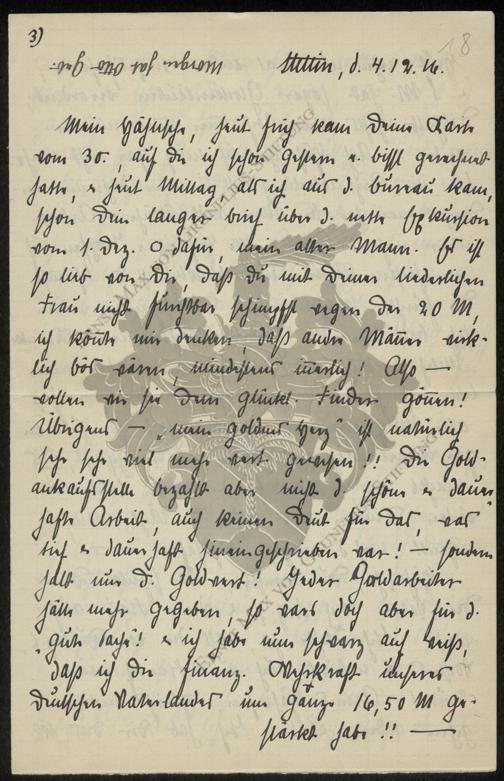 3)
18
Morgen hat Otto Geb.
Stettin, d. 4.12.16.
Mein Hähnsche, heut früh kam Deine Karte
vom 30., auf die ich schon gestern e. bissl gerechnet
hatte, & heut Mittag, als ich aus d. bureau kam,
schon Dein langer brief über d. nette Exkursion
vom 1. Dez. O dafür, mein alter Mann. Es ist
so lieb von Dir, daß Du mit Deiner liederlichen
Frau nicht furchtbar schimpfst wegen der 20 M,
ich könnte mir denken, daß andre Männer wirk-
lich bös wären, mindestens innerlich! Also —
wollen wir sie dem glückl. Finder gönnen!
Übrigens — „mein goldnes Herz" ist natürlich
sehr sehr viel mehr wert gewesen!! Die Gold-
ankaufsstelle bezahlt aber nicht d. schöne & dauer-
hafte Arbeit, auch keinen Deut für das, was
tief & dauerhaft hineingeschrieben war! — sondern
halt nur d. Goldwert! Jeder Goldarbeiter
hätte mehr gegeben, so wars doch aber für d.
„gute Sache! & ich habe nun schwarz auf weiß,
daß ich die finanz. Wehrkraft unseres
Deutschen Vaterlandes um ganze 16,50 M ge-
stärkt habe!! —